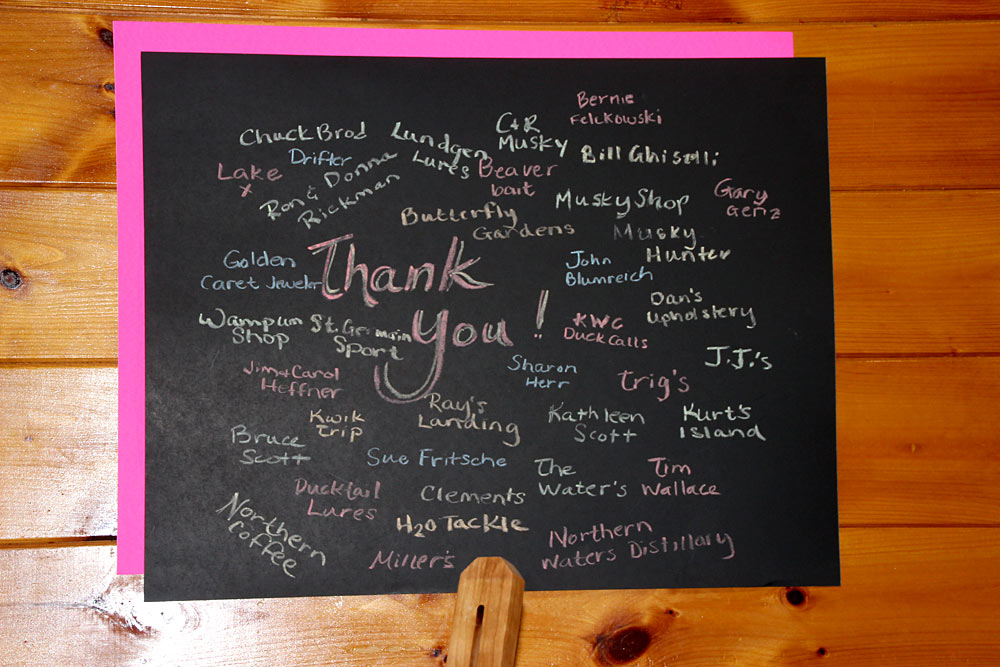 Bernie
Felckowski
Chuck Brod
Lundgen
Lures
C&R
Musky
Bill Ghisalli
Drifter
Lake
X
Ron & Donna
Rickman
Beaver
bait
Musky Shop
Gary
Genz
Butterfly
Gardens
Musky
Hunter
Golden
Caret Jeweler
Thank
You!
John
Blumreich
Dan's
Upholstery
Wampum
Shop
St. Germain
Sport
KWC
Duck Calls
J.J.'s
Jim & Carol
Heffner
Sharon
Herr
Trig's
Kwik
Trip
Ray's
Landing
Kathleen
Scott
Kurt's
Island
Bruce
Scott
Sue Fritsche
The
Water's
Tim
Wallace
Ducktail
Lures
Clements
Northern
Coffee
H2O Tackle
Miller's
Northern
Waters Distillary